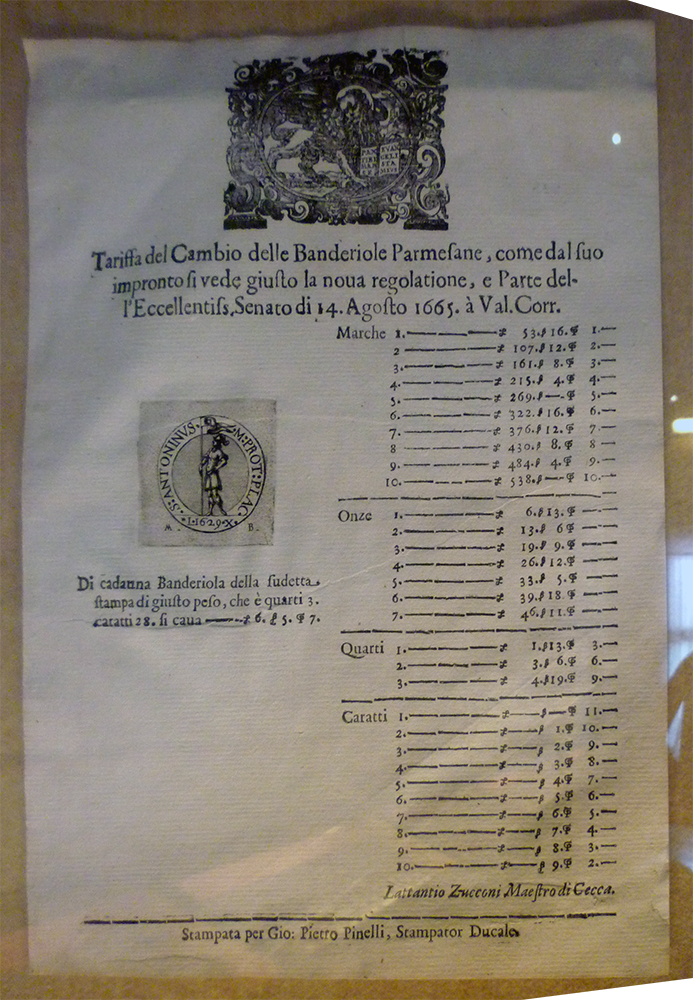 PAX EVAN
TIBI GELI
MAR STA
CE MEVS
Tariffa del Cambio delle Banderiole Parmeſane, come dal ſuo
impronto ſi vede giuſto la noua regolatione, e Parte del-
l'Eccellentiſs. Senato di 14. Agoſto 1665. à Val. Corr.
Marche 1. — ₤ 53. ß 16. ₰ 1. —
2 — ₤ 107. ß 12. ₰ 2. —
3. — ₤ 161. ß 8. ₰ 3. —
4. — ₤ 215. ß 4. ₰ 4. —
5. — ₤ 269. ß — ₰ 5. —
6. — ₤ 322. ß 16. ₰ 6. —
7. — ₤ 376. ß 12. ₰ 7. —
8 — ₤ 430. ß 8. ₰ 8 —
9. — ₤ 484. ß 4. ₰ 9. —
10. — ₤ 538. ß — ₰ 10. —
S. ANTONINVS. M. PROT. PLAC.
I. 1629. X.
A. B.
Di cadauna Banderiola della ſudetta
ſtampa di giuſto peſo, che è quarti 3.
caratti 28. ſi caua — ₤ 6. ß 5. ₰ 7.
Onze 1. — ₤ 6. ß 13. ₰ — —
2. — ₤ 13. ß 6 ₰ — —
3. — ₤ 19. ß 9. ₰ — —
4. — ₤ 26. ß 12. ₰ — —
5. — ₤ 33. ß 5. ₰ — —
6. — ₤ 39. ß 18. ₰ — —
7. — ₤ 46. ß 11. ₰ — —
Quarti 1. — ₤ 1. ß 13. ₰ 3. —
2. — ₤ 3. ß 6. ₰ 6. —
3. — ₤ 4. ß 19. ₰ 9. —
Caratti 1. — ₤ — ß — ₰ 11. —
2. — ₤ — ß 1. ₰ 10. —
3. — ₤ — ß 2. ₰ 9. —
4. — ₤ — ß 3. ₰ 8. —
5. — ₤ — ß 4. ₰ 7. —
6. — ₤ — ß 5. ₰ 6. —
7. — ₤ — ß 6. ₰ 5. —
8. — ₤ — ß 7. ₰ 4. —
9. — ₤ — ß 8. ₰ 3. —
10. — ₤ — ß 9. ₰ 2. —
Lattantio Zucconi Maeſtro di Cecca.
Stampata per Gio: Pietro Pinelli, Stampator Ducale.